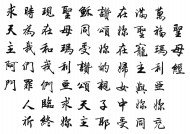 聖母經
萬福瑪利亞妳充
滿聖寵主與妳同
在妳在婦女中受
讚頌妳的親子耶
穌同受讚頌天主
聖母瑪利亞求妳
現在和我們臨終
時為我們罪人祈
求天主阿們